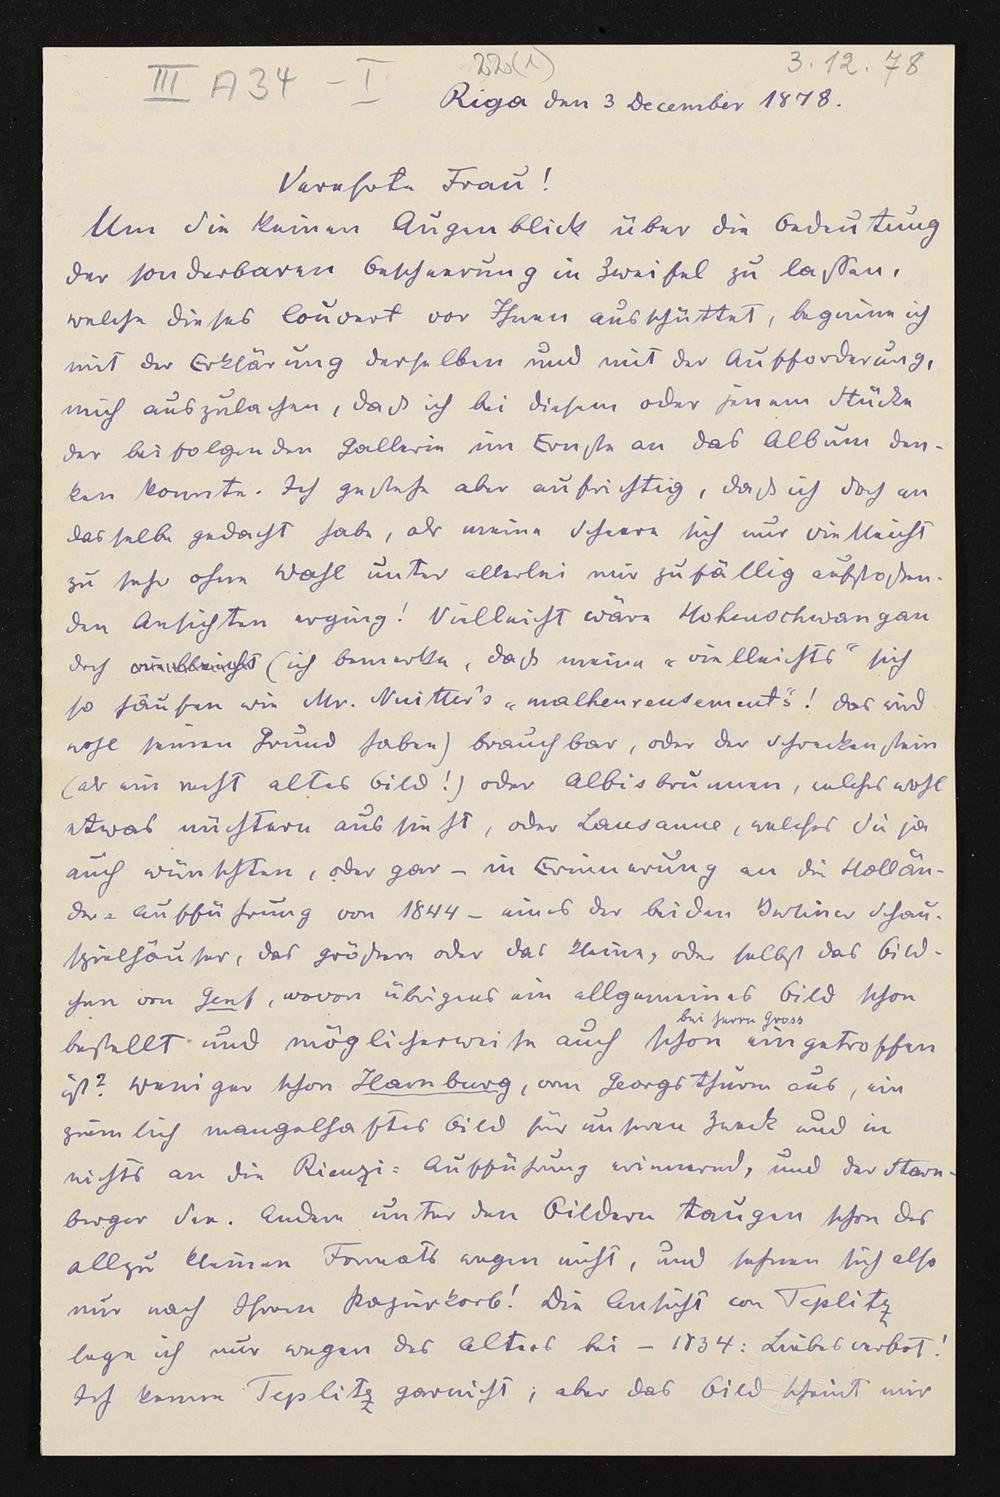 III A 34 - I
22(1)
3.12.78
Riga den 3 December 1878.
Verehrte Frau!
Um Sie keinen Augenblick über die Bedeutung
der sonderbaren Bescheerung in Zweifel zu lassen,
welche dieses Couvert vor Ihnen ausschüttet, beginne ich
mit der Erklärung derselben und mit der Aufforderung,
mich auszulachen, daß ich bei diesem oder jenem Stücke
der beifolgenden Gallerie im Ernste an das Album den-
ken konnte. Ich gestehe aber aufrichtig, daß ich doch an
dasselbe gedacht habe, als meine Scheere sich nur vielleicht
zu sehr ohne Wahl unter allerlei mir zufällig aufstoßen-
den Ansichten erging! Vielleicht wäre Hohenschwangau
doch vielleicht (ich bemerke, daß meine „vielleichts" sich
so häufen wie Mr. Nuitter's „malheureusement's"! das wird
wohl seinen Grund haben) brauchbar, oder der Schreckenstein
(als ein recht altes Bild!) oder Albisbrunnen, welches wohl
etwas nüchtern aussieht, oder Lausanne, welches Sie ja
auch wünschten, oder gar – in Erinnerung an die Hollän-
der-Aufführung von 1844 – eines der beiden Berliner Schau-
spielhäuser, das größere oder das kleine, oder selbst das Bild-
chen von Genf, wovon übrigens ein allgemeines Bild schon
bei Herrn Gross
bestellt und möglicherweise auch schon eingetroffen
ist? Weniger schon Hamburg, vom Georgsthurm aus, ein
ziemlich mangelhaftes Bild für unseren Zweck und in
nichts an die Rienzi-Aufführung erinnernd, und der Starn-
berger See. Andere unter den Bildern taugen schon des
allzu kleinen Formats wegen nicht, und sehnen sich also
nur nach Ihrem Papierkorb! Die Ansicht von Teplitz
lege ich nur wegen des Alters bei – 1834: Liebesverbot!
Ich kenne Teplitz garnicht; aber das Bild scheint mir